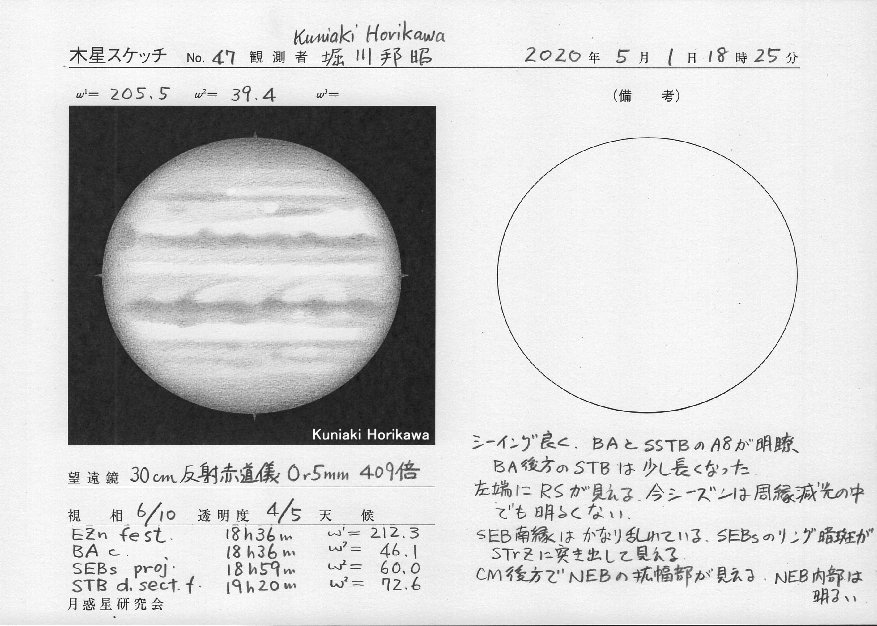 Kuniaki Horikawa
木星スケッチ No. 47 観測者 堀川邦昭 2020年 5月 1日 18時 25分
ω¹= 205.5 ω²= 39.4 ω³=
(備 考)
Kuniaki Horikawa
望遠鏡 30cm 反射赤道儀 Or5mm 409倍
視 相 6/10 透明度 4/5 天 候
EZn fest. 18h36m ω¹= 212.3
BA c. 18h36m ω²= 46.1
SEBs proj. 18h59m ω²= 60.0
STB d. sect. f. 19h20m ω²= 72.6
月惑星研究会
シーイング良く、BAとSSTBのA8が明瞭、
BA後方のSTBは少し長くなった.
左端にRSが見える. 今シーズンは周縁減光の中
でも明るくない.
SEB南縁はかなり乱れている. SEBsのリング暗斑が
STrZに突き出して見える.
CM後方でNEBの拡幅部が見える. NEB内部は
明るい